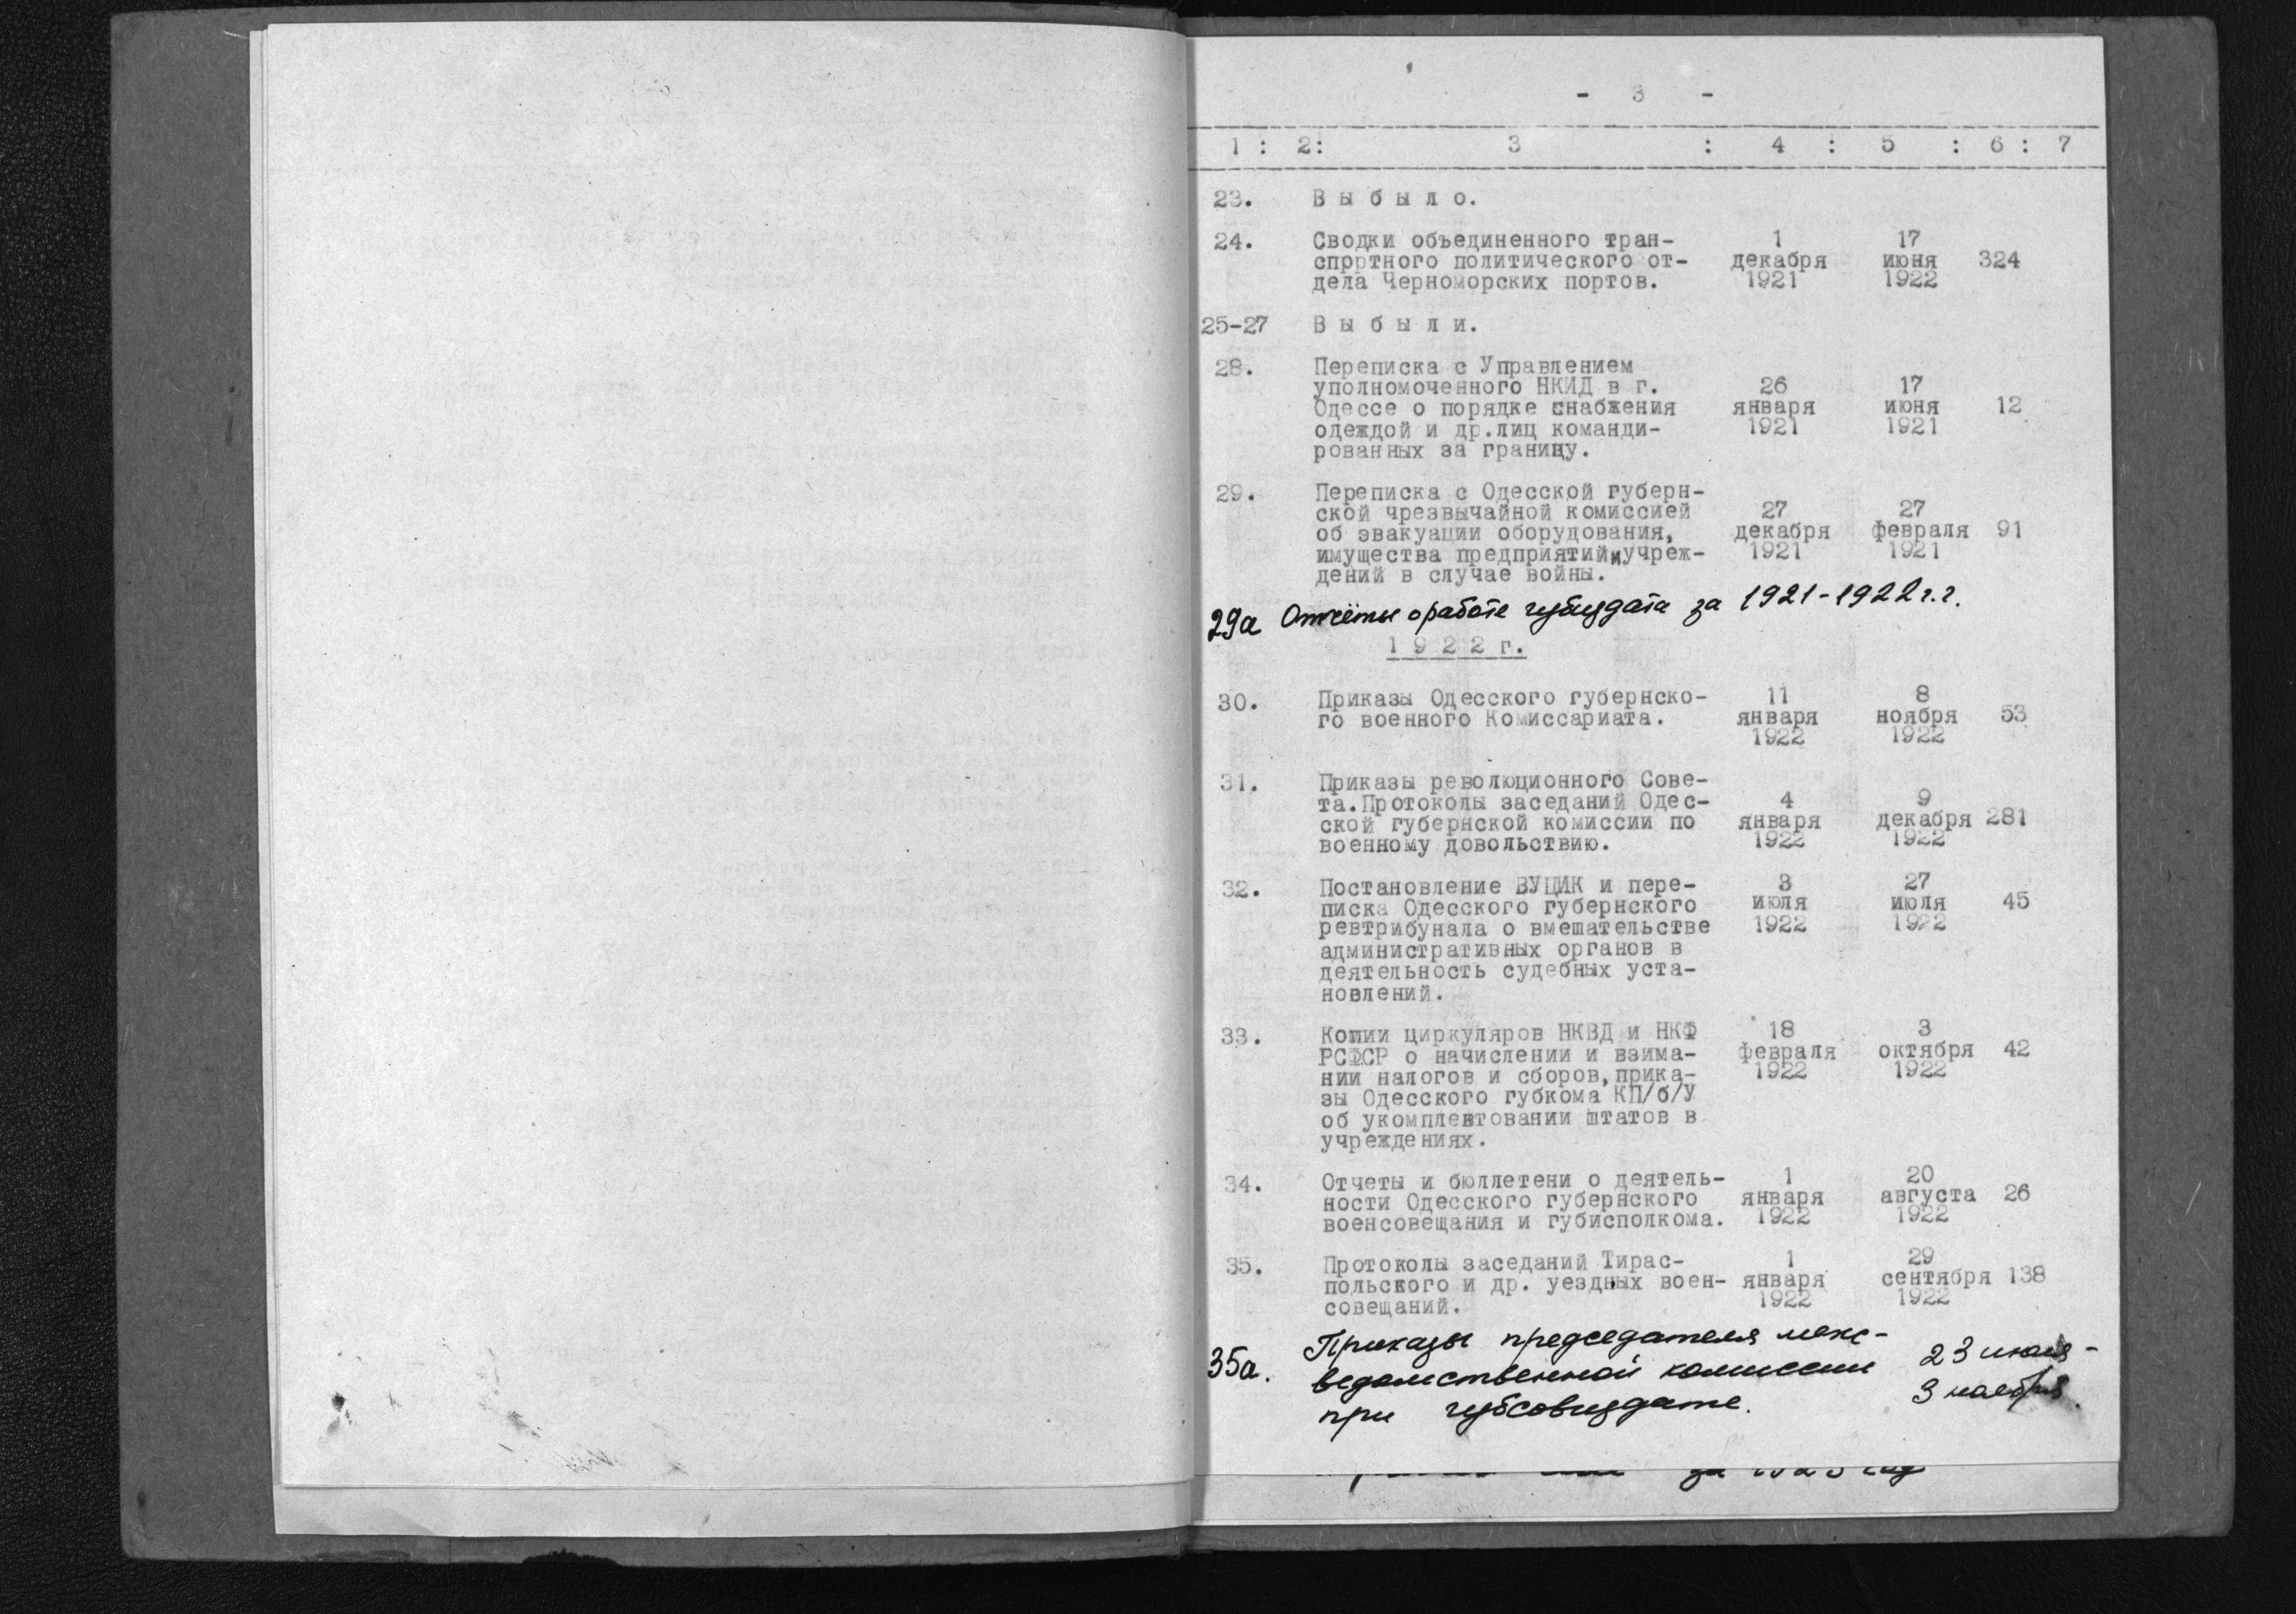 - 3 -
1 : 2: 3 : 4 : 5 : 6 : 7
23. В ы б ы л о.
24. Сводки объединенного тран- 1 17
спрртного политического от- декабря июня 324
дела Черноморских портов. 1921 1922
25-27 В ы б ы л и.
28. Переписка с Управлением
уполномоченного НКИД в г. 26 17
Одессе о порядке снабжения января июня 12
одеждой и др.лиц команди- 1921 1921
рованных за границу.
29. Переписка с Одесской губерн-
ской чрезвычайной комиссией 27 27
об эвакуации оборудования, декабря февраля 91
имущества предприятий и учреж- 1921 1921
дений в случае войны.
29а Отчёты о работе губиздата за 1921-1922 г.г.
1 9 2 2 г.
30. Приказы Одесского губернско- 11 8
го военного Комиссариата. января ноября 53
1922 1922
31. Приказы революционного Сове-
та.Протоколы заседаний Одес- 4 9
ской губернской комиссии по января декабря 281
военному довольствию. 1922 1922
32. Постановление ВУЦИК и пере- 3 27
писка Одесского губернского июля июля 45
ревтрибунала о вмешательстве 1922 1922
административных органов в
деятельность судебных уста-
новлений.
33. Копии циркуляров НКВД и НКФ 18 3
РСФСР о начислении и взима- февраля октября 42
нии налогов и сборов,прика- 1922 1922
зы Одесского губкома КП/б/У
об укомплектовании штатов в
учреждениях.
34. Отчеты и бюллетени о деятель- 1 20
ности Одесского губернского января августа 26
военсовещания и губисполкома. 1922 1922
35. Протоколы заседаний Тирас- 1 29
польского и др. уездных воен- января сентября 138
совещаний. 1922 1922
35а. Приказы председателя меж-
ведомственной комиссии 23 июля -
при губсовиздате. 3 ноября